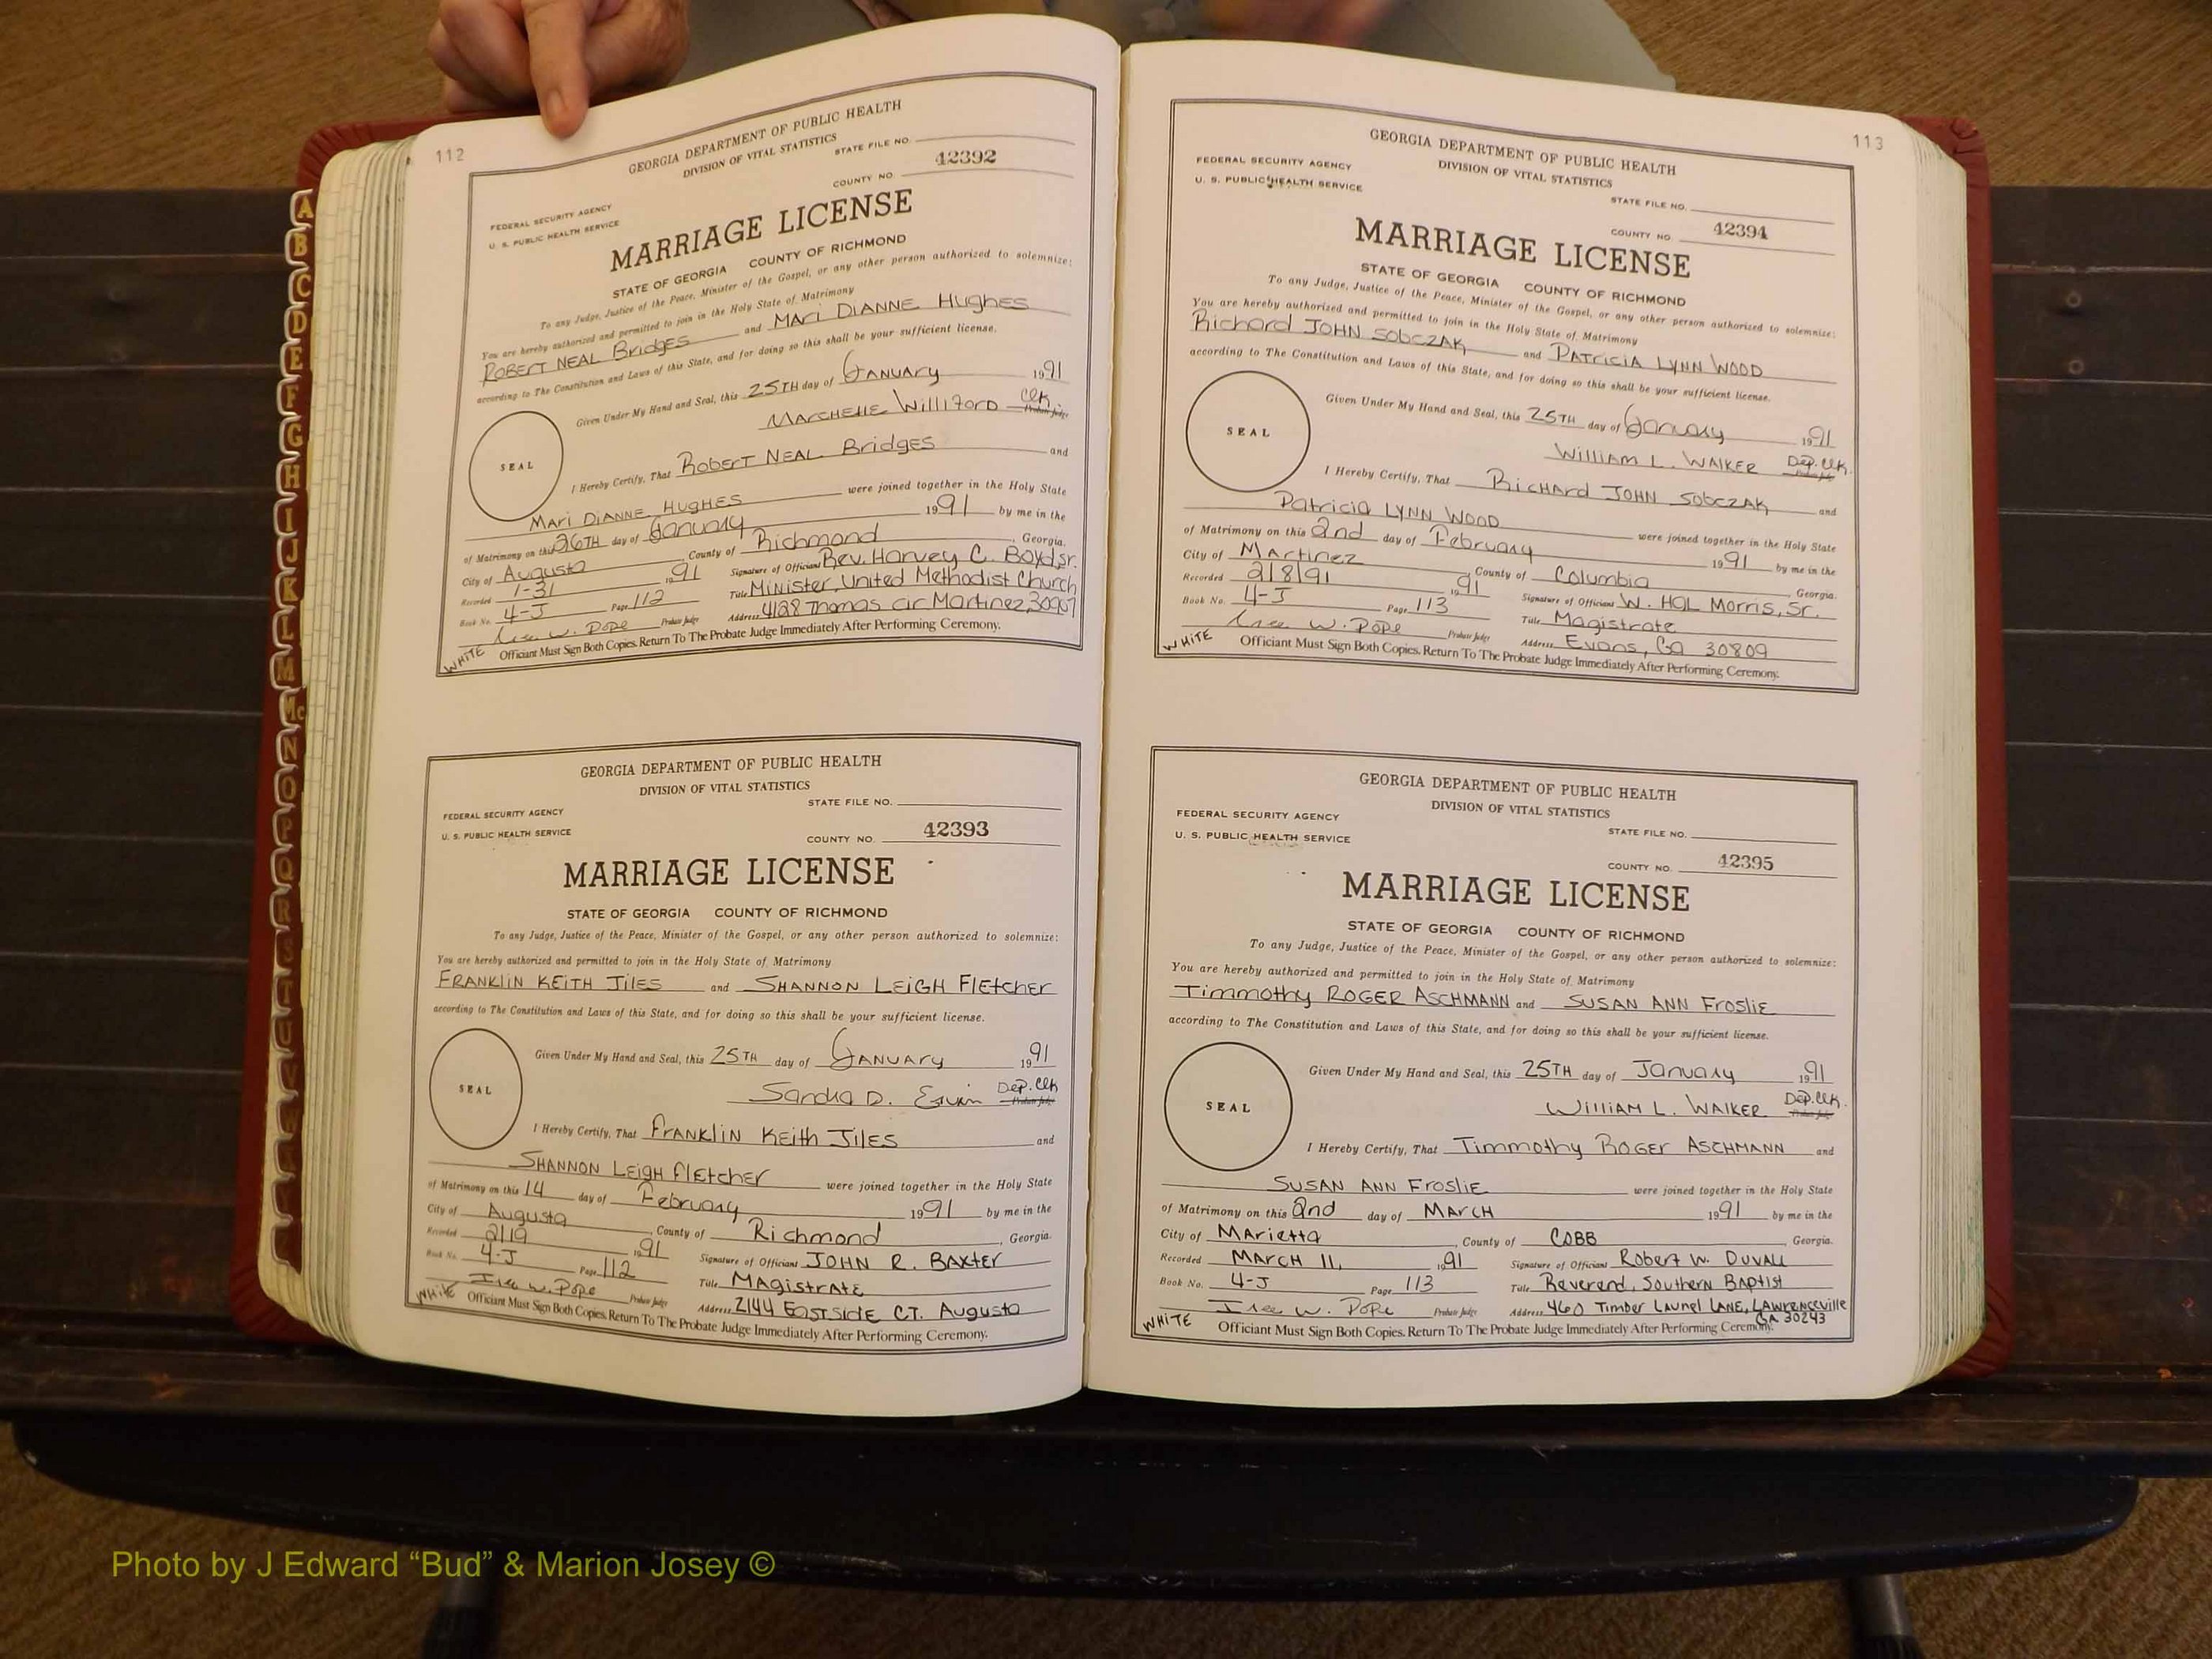 112
GEORGIA DEPARTMENT OF PUBLIC HEALTH
DIVISION OF VITAL STATISTICS
STATE FILE NO.
COUNTY NO. 42392
FEDERAL SECURITY AGENCY
U. S. PUBLIC HEALTH SERVICE
MARRIAGE LICENSE
STATE OF GEORGIA COUNTY OF RICHMOND
To any Judge, Justice of the Peace, Minister of the Gospel, or any other person authorized to solemnize:
You are hereby authorized and permitted to join in the Holy State of Matrimony
ROBERT NEAL Bridges and MARI DIANNE Hughes
according to The Constitution and Laws of this State, and for doing so this shall be your sufficient license.
Given Under My Hand and Seal, this 25TH day of JANUARY 1991
MARCHELLE WILLIFORD Clk
Probate Judge
SEAL
I Hereby Certify, That ROBERT NEAL Bridges and
MARI DIANNE HUGHES were joined together in the Holy State
of Matrimony on this 26TH day of January 1991 by me in the
City of Augusta County of Richmond, Georgia.
Recorded 1-31 1991 Signature of Officiant Rev. Harvey C. Boyd, Sr.
Book No. 4-J Page 112 Title Minister, United Methodist Church
W. Pope Probate Judge Address 4128 Thomas Cir Martinez, 30907
WHITE Officiant Must Sign Both Copies. Return To The Probate Judge Immediately After Performing Ceremony.
GEORGIA DEPARTMENT OF PUBLIC HEALTH
DIVISION OF VITAL STATISTICS
STATE FILE NO.
FEDERAL SECURITY AGENCY
U. S. PUBLIC HEALTH SERVICE
COUNTY NO. 42393
MARRIAGE LICENSE
STATE OF GEORGIA COUNTY OF RICHMOND
To any Judge, Justice of the Peace, Minister of the Gospel, or any other person authorized to solemnize:
You are hereby authorized and permitted to join in the Holy State of Matrimony
FRANKLIN KEITH JILES and SHANNON LEIGH FLETCHER
according to The Constitution and Laws of this State, and for doing so this shall be your sufficient license.
Given Under My Hand and Seal, this 25TH day of JANUARY 1991
Sandra D. Dep. Clk
Probate Judge
SEAL
I Hereby Certify, That FRANKLIN KEITH JILES and
SHANNON LEIGH FLETCHER were joined together in the Holy State
of Matrimony on this 14 day of February 1991 by me in the
City of Augusta, County of Richmond, Georgia.
Recorded 2/19 1991 Signature of Officiant JOHN R. BAXTER
Book No. 4-J Page 112 Title MAGISTRATE
W. Pope Probate Judge Address 2144 EASTSIDE CT. Augusta
WHITE Officiant Must Sign Both Copies. Return To The Probate Judge Immediately After Performing Ceremony.
113
GEORGIA DEPARTMENT OF PUBLIC HEALTH
DIVISION OF VITAL STATISTICS
FEDERAL SECURITY AGENCY
U. S. PUBLIC HEALTH SERVICE
STATE FILE NO.
COUNTY NO. 42394
MARRIAGE LICENSE
STATE OF GEORGIA COUNTY OF RICHMOND
To any Judge, Justice of the Peace, Minister of the Gospel, or any other person authorized to solemnize:
You are hereby authorized and permitted to join in the Holy State of Matrimony
Richard JOHN SOBCZAK and PATRICIA LYNN WOOD
according to The Constitution and Laws of this State, and for doing so this shall be your sufficient license.
Given Under My Hand and Seal, this 25TH day of January 1991
WILLIAM L. WALKER Dep. Clk.
Probate Judge
SEAL
I Hereby Certify, That RICHARD JOHN SOBCZAK and
Patricia LYNN WOOD were joined together in the Holy State
of Matrimony on this 2nd day of February 1991 by me in the
City of Martinez, County of Columbia, Georgia.
Recorded 2/8/91 1991 Signature of Officiant W. Hal Morris, Sr.
Book No. 4-J Page 113 Title Magistrate
W. Pope Probate Judge Address Evans, Ga 30809
WHITE Officiant Must Sign Both Copies. Return To The Probate Judge Immediately After Performing Ceremony.
GEORGIA DEPARTMENT OF PUBLIC HEALTH
DIVISION OF VITAL STATISTICS
FEDERAL SECURITY AGENCY
U. S. PUBLIC HEALTH SERVICE
STATE FILE NO.
COUNTY NO. 42395
MARRIAGE LICENSE
STATE OF GEORGIA COUNTY OF RICHMOND
To any Judge, Justice of the Peace, Minister of the Gospel, or any other person authorized to solemnize:
You are hereby authorized and permitted to join in the Holy State of Matrimony
Timmothy ROGER ASCHMANN and SUSAN ANN FROSLIE
according to The Constitution and Laws of this State, and for doing so this shall be your sufficient license.
Given Under My Hand and Seal, this 25TH day of January 1991
WILLIAM L. WALKER Dep. Clk.
Probate Judge
SEAL
I Hereby Certify, That Timmothy ROGER ASCHMANN and
SUSAN ANN FROSLIE were joined together in the Holy State
of Matrimony on this 2nd day of MARCH 1991 by me in the
City of Marietta, County of COBB, Georgia.
Recorded MARCH 11, 1991 Signature of Officiant Robert W. DUVALL
Book No. 4-J Page 113 Title Reverend, Southern Baptist
W. Pope Probate Judge Address 460 Timber Laurel LANE, LAWRENCEVILLE
GA 30243
WHITE Officiant Must Sign Both Copies. Return To The Probate Judge Immediately After Performing Ceremony.
A
B
C
D
E
F
G
H
I
J
K
L
M
Mc
N
O
P
Q
R
S
T
U
Photo by J Edward “Bud” & Marion Josey ©